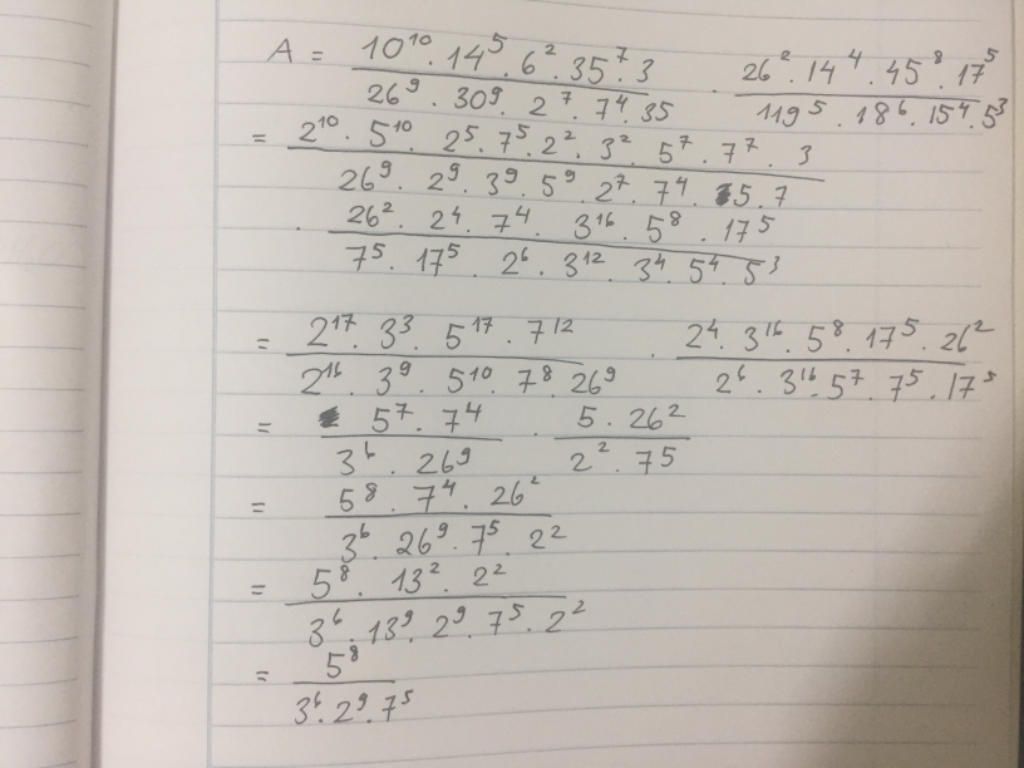 A = 10¹⁰ . 14⁵ . 6² . 35⁷ . 3 / 26⁹ . 30⁹ . 2⁷ . 7⁴ . 35 . 26² . 14⁴ . 45⁸ . 17⁵ / 119⁵ . 18⁶ . 15⁴ . 5³
= 2¹⁰ . 5¹⁰ . 2⁵ . 7⁵ . 2² . 3² . 5⁷ . 7⁷ . 3 / 26⁹ . 2⁹ . 3⁹ . 5⁹ . 2⁷ . 7⁴ . 5 . 7
. 26² . 2⁴ . 7⁴ . 3¹⁶ . 5⁸ . 17⁵ / 7⁵ . 17⁵ . 2⁶ . 3¹² . 3⁴ 5⁴ . 5³
= 2¹⁷ . 3³ . 5¹⁷ . 7¹² / 2¹⁶ . 3⁹ . 5¹⁰ . 7⁸ . 26⁹ . 2⁴ . 3¹⁶ . 5⁸ . 17⁵ . 26² / 2⁶ . 3¹⁶ . 5⁷ . 7⁵ . 17⁵
= 5⁷ . 7⁴ / 3⁶ . 26⁹ . 5 . 26² / 2² . 7⁵
= 5⁸ . 7⁴ . 26² / 3⁶ . 26⁹ . 7⁵ . 2²
= 5⁸ . 13² . 2² / 3⁶ . 13⁹ . 2⁹ . 7⁵ . 2²
= 5⁸ / 3⁶ . 2⁹ . 7⁵